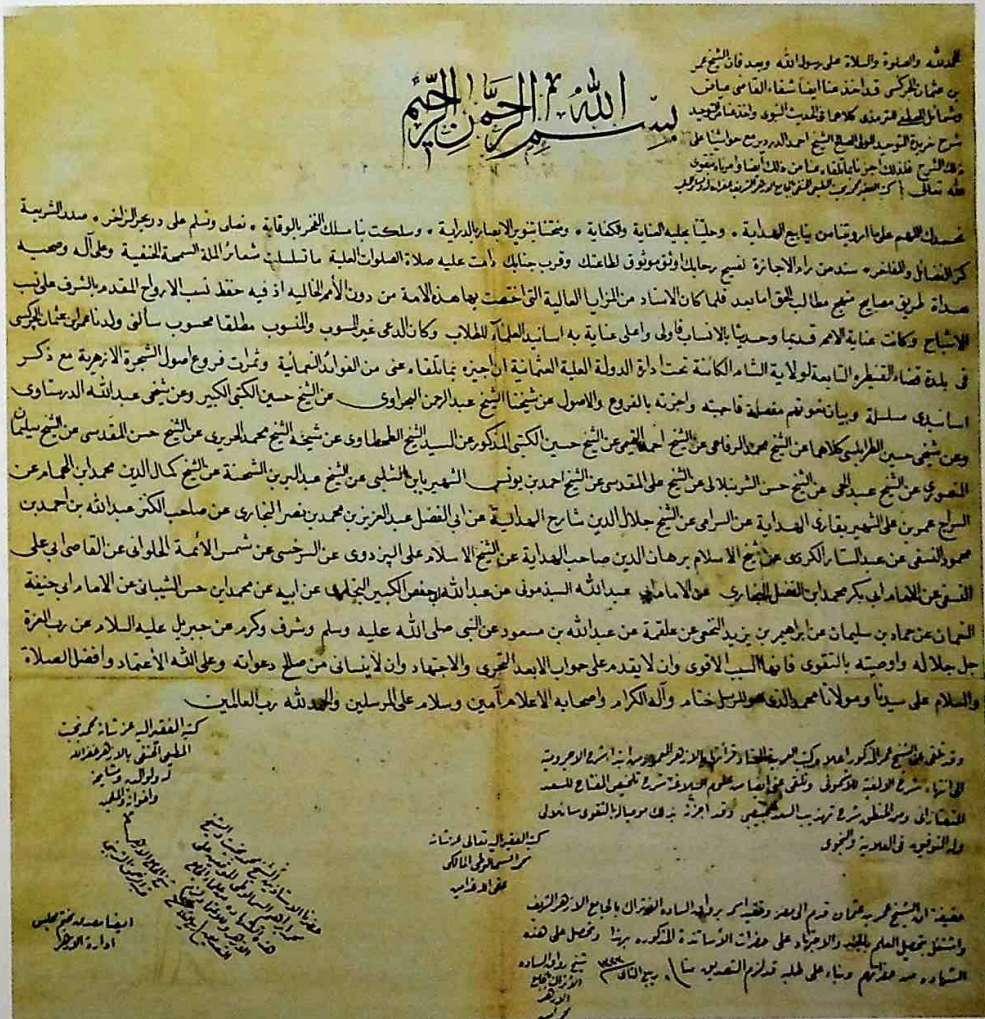 الحمد لله والصلوة والسلاة على رسول الله وبعد فان الشيخ عمر
بن عثمان الجركسى قد اخذ عنا ايضا شفاء القاضى عياض
وشمائل المصطفى للترمذى كلاهما فى الحديث النبوى واخذ عنا فى التوحيد
شرح خريدة التوحيد للولى الصالح الشيخ احمد الدردير مع حواشينا على
ذلك الشرح فلذلك اجزناه بما تلقاه عنا من ذلك أيضا وأمرناه بتقوى
الله تعالى
بسم الله الرحمن الرحيم
نحمدك اللهم على ما ارويتنا من ينابيع الهداية . وحليتنا بحلية العناية والكفاية . ومنحتنا تنوير الابصار بالدراية . وسلكت بنا مسلك الفخر بالوقاية . نصلى ونسلم على در بحر الزاخر . صدر الشريعة
كنز الفضائل والمفاخر . سند من رام الاجازة لفسيح رحابك اوثق موثوق لطاعتك وقرب جنابك دامت عليه صلاة الصلوات العلية ما تسلسلت شعائر الملة السمحة الحنفية وعلى آله وصحبه
هداة طريق مصابيح منهج مطالب الحق اما بعد فلما كان الاسناد من المزايا العالية التى اختصت بها هذه الامة من دون الأمم الخالية اذ فيه حفظ نسب الارواح المقدم بالشرف على نسب
الاشباح وكانت عناية الامم قديما وحديثا بالانساب فاولى واعلى عناية به اسانيد العلماء للطلاب وكان الدعى غير المنسوب والمنسوب مطلقا محسوب سألنى ولدنا عمر ابن عثمان الجركسى
فى بلدة قضاء القنيطره التابعة لولاية الشام الكائنة تحت ادارة الدولة العلية العثمانية ان اجيزه بما تلقاه عنى من الفوائد النعمانية وثمرات فروع اصول الشجرة الازهرية مع ذكر
اسانيدى مسلسلة وبيان نعوتهم مفصلة فاجبته واجزته بالفروع والاصول عن شيخنا الشيخ عبد الرحمن البحراوى عن الشيخ حسين الكتبى الكبير وعن شيخى عبد الله الدرستاوى
وعن شيخى حسين الطرابلسى كلاهما عن الشيخ محمد الرفاعى عن الشيخ حسين الكتبى المذكور عن السيد الشيخ الطحطاوى عن شيخه الشيخ محمد الحريرى عن الشيخ حسن المقدسى عن الشيخ سليمان
المنصورى عن الشيخ عبد الحى عن الشيخ حسن الشرنبلالى عن الشيخ على المقدسى عن الشيخ احمد بن يونس الشهير بابن الشلبى عن الشيخ عبد البر بن الشحنة عن الشيخ كمال الدين محمد ابن الهمام عن
السراج عمر بن على الشهير بقارئ الهداية عن السرامى عن الشيخ جلال الدين شارح الهداية عن ابى الفضل عبد العزيز بن محمد بن نصر البخارى عن صاحب الكنز عبد الله بن احمد بن
محمود النسفى عن عبد الستار الكردى عن شيخ الاسلام برهان الدين صاحب الهداية عن الشيخ الاسلام على البزدوى عن السرخسى عن شمس الائمة الحلوانى عن القاضى ابى على
النسفى عن الامام ابى بكر محمد ابن الفضل البخارى عن الامام ابى عبد الله السبذمونى عن عبد الله ابى حفص الكبير البخارى عن ابيه عن محمد ابن حسن الشيبانى عن الامام ابى حنيفة
النعمان عن حماد بن سليمان عن ابراهيم بن يزيد النخعى عن علقمة عن عبد الله بن مسعود عن النبى صلى الله عليه وسلم وشرف وكرم عن جبريل عليه السلام عن رب العزة
جل جلاله واوصيته بالتقوى فانها السبب الاقوى وان لا يقدم على جواب الا بعد التحرى والاجتهاد وان لا ينسانى من صالح دعواته وعلى الله الأعتماد وافضل الصلاة
والسلام على سيدنا ومولانا محمد الذى هو للرسل ختام وآله الكرام واصحابه الاعلام آمين وسلام على المرسلين والحمد لله رب العالمين
كتبه الفقير اليه عز شأنه محمد بخيت
المطيعى الحنفى بالازهر غفر الله
له ولوالديه ومشايخه
واخوانه والمسلمين
وقد تلقى عنى الشيخ عمر المذكور اعلاه كتب العربية المعتاد قرأتها بالازهر المعمور من ابتدا شرح الاجرومية
الى انتهاء شرح الالفية للاشمونى وتلقى عنى ايضا من علوم البلاغة شرح تلخيص المفتاح للسعد
التفتازانى ومن المنطق شرح تهذيب السعد للخبيصى وقد اجزته بذلك موصيا له بالتقوى سائلا لى
وله التوفيق فى العلانية والنجوى
كتبه الفقير اليه تعالى عز شانه
محمد السمالوطى المالكى
عفى الله عنه
حقيقة ان الشيخ عمر بن عثمان قدم الى مصر وتقيد اسمه برواق الساده الاتراك بالجامع الازهر الشريف
واشتغل بتحصيل العلم بالجد والاجتهاد على حضرات الأساتذة المذكوره بهذا وتحصل على هذه
الشهاده من حضراتهم وبناء على طلبه قد لزم التصديق منا ربيع الثانى
شيخ رواق الساده
الاتراك بالجامع
الازهر